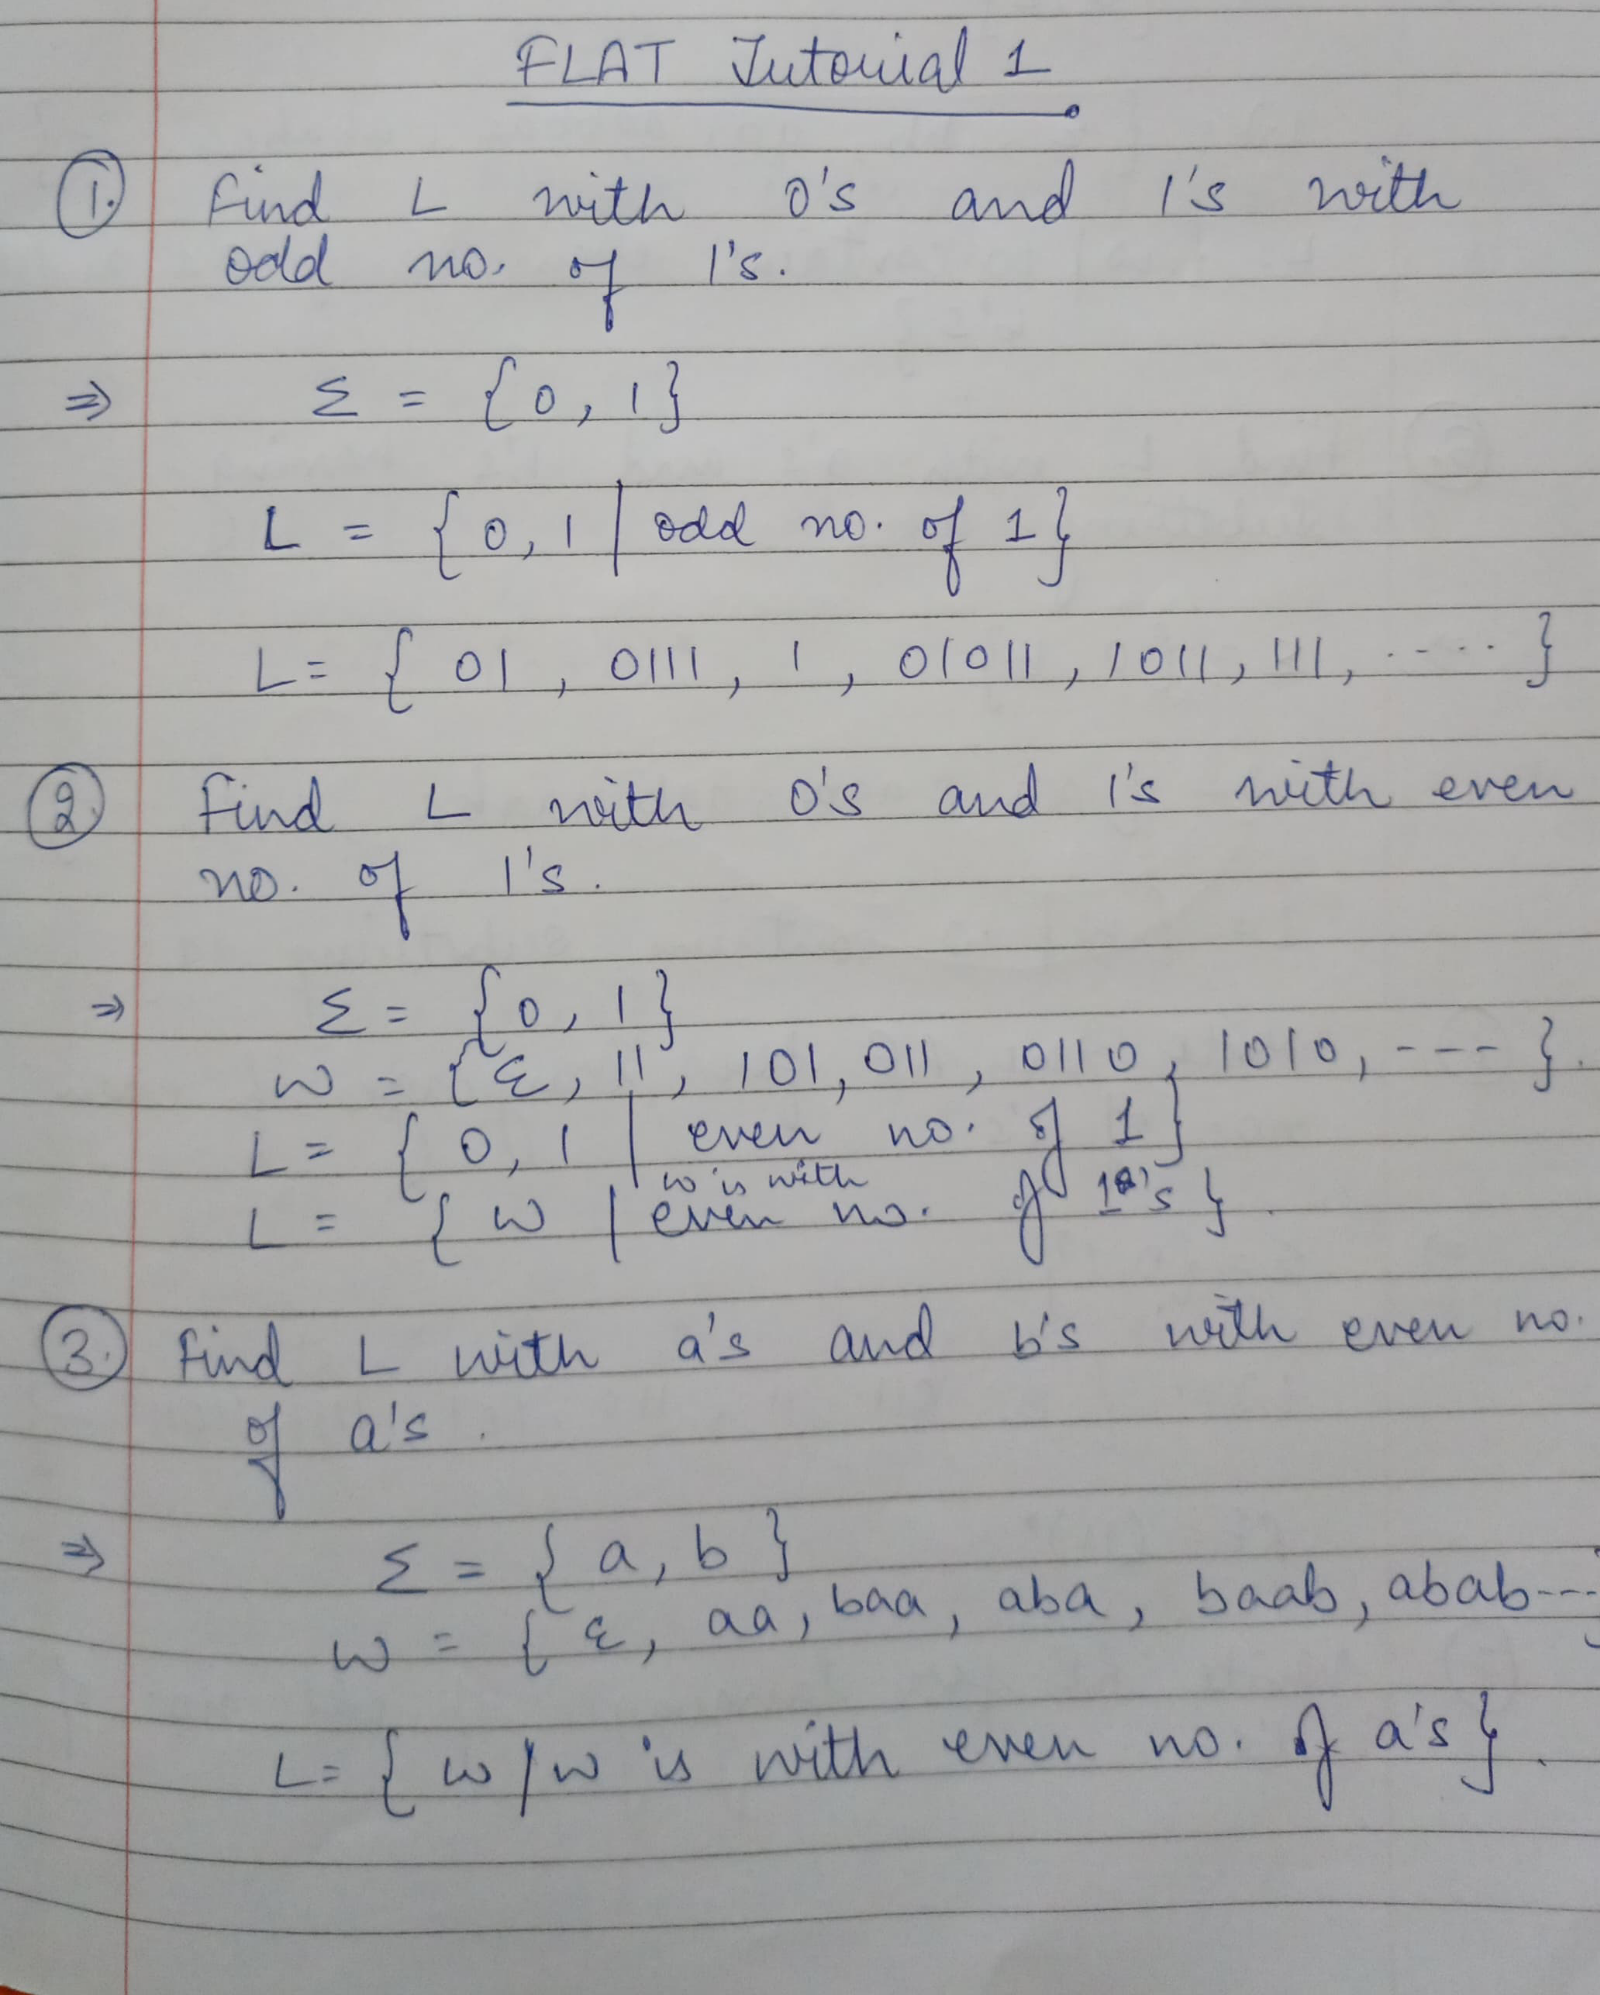 FLAT Tutorial 1
1. Find L with 0's and 1's with
odd no. of 1's.
⇒ Σ = {0, 1}
L = {0, 1 | odd no. of 1}
L = { 01, 0111, 1, 01011, 1011, 111, ..... }
2. Find L with 0's and 1's with even
no. of 1's.
⇒ Σ = {0, 1}
w = {ε, 11, 101, 011, 0110, 1010, --- }.
L = { 0, 1 | even no. of 1}
w is with
L = { w | even no. of 1's }.
3. Find L with a's and b's with even no.
of a's.
⇒ Σ = { a, b }
w = { ε, aa, baa, aba, baab, abab---}
L = { w / w is with even no. of a's }.